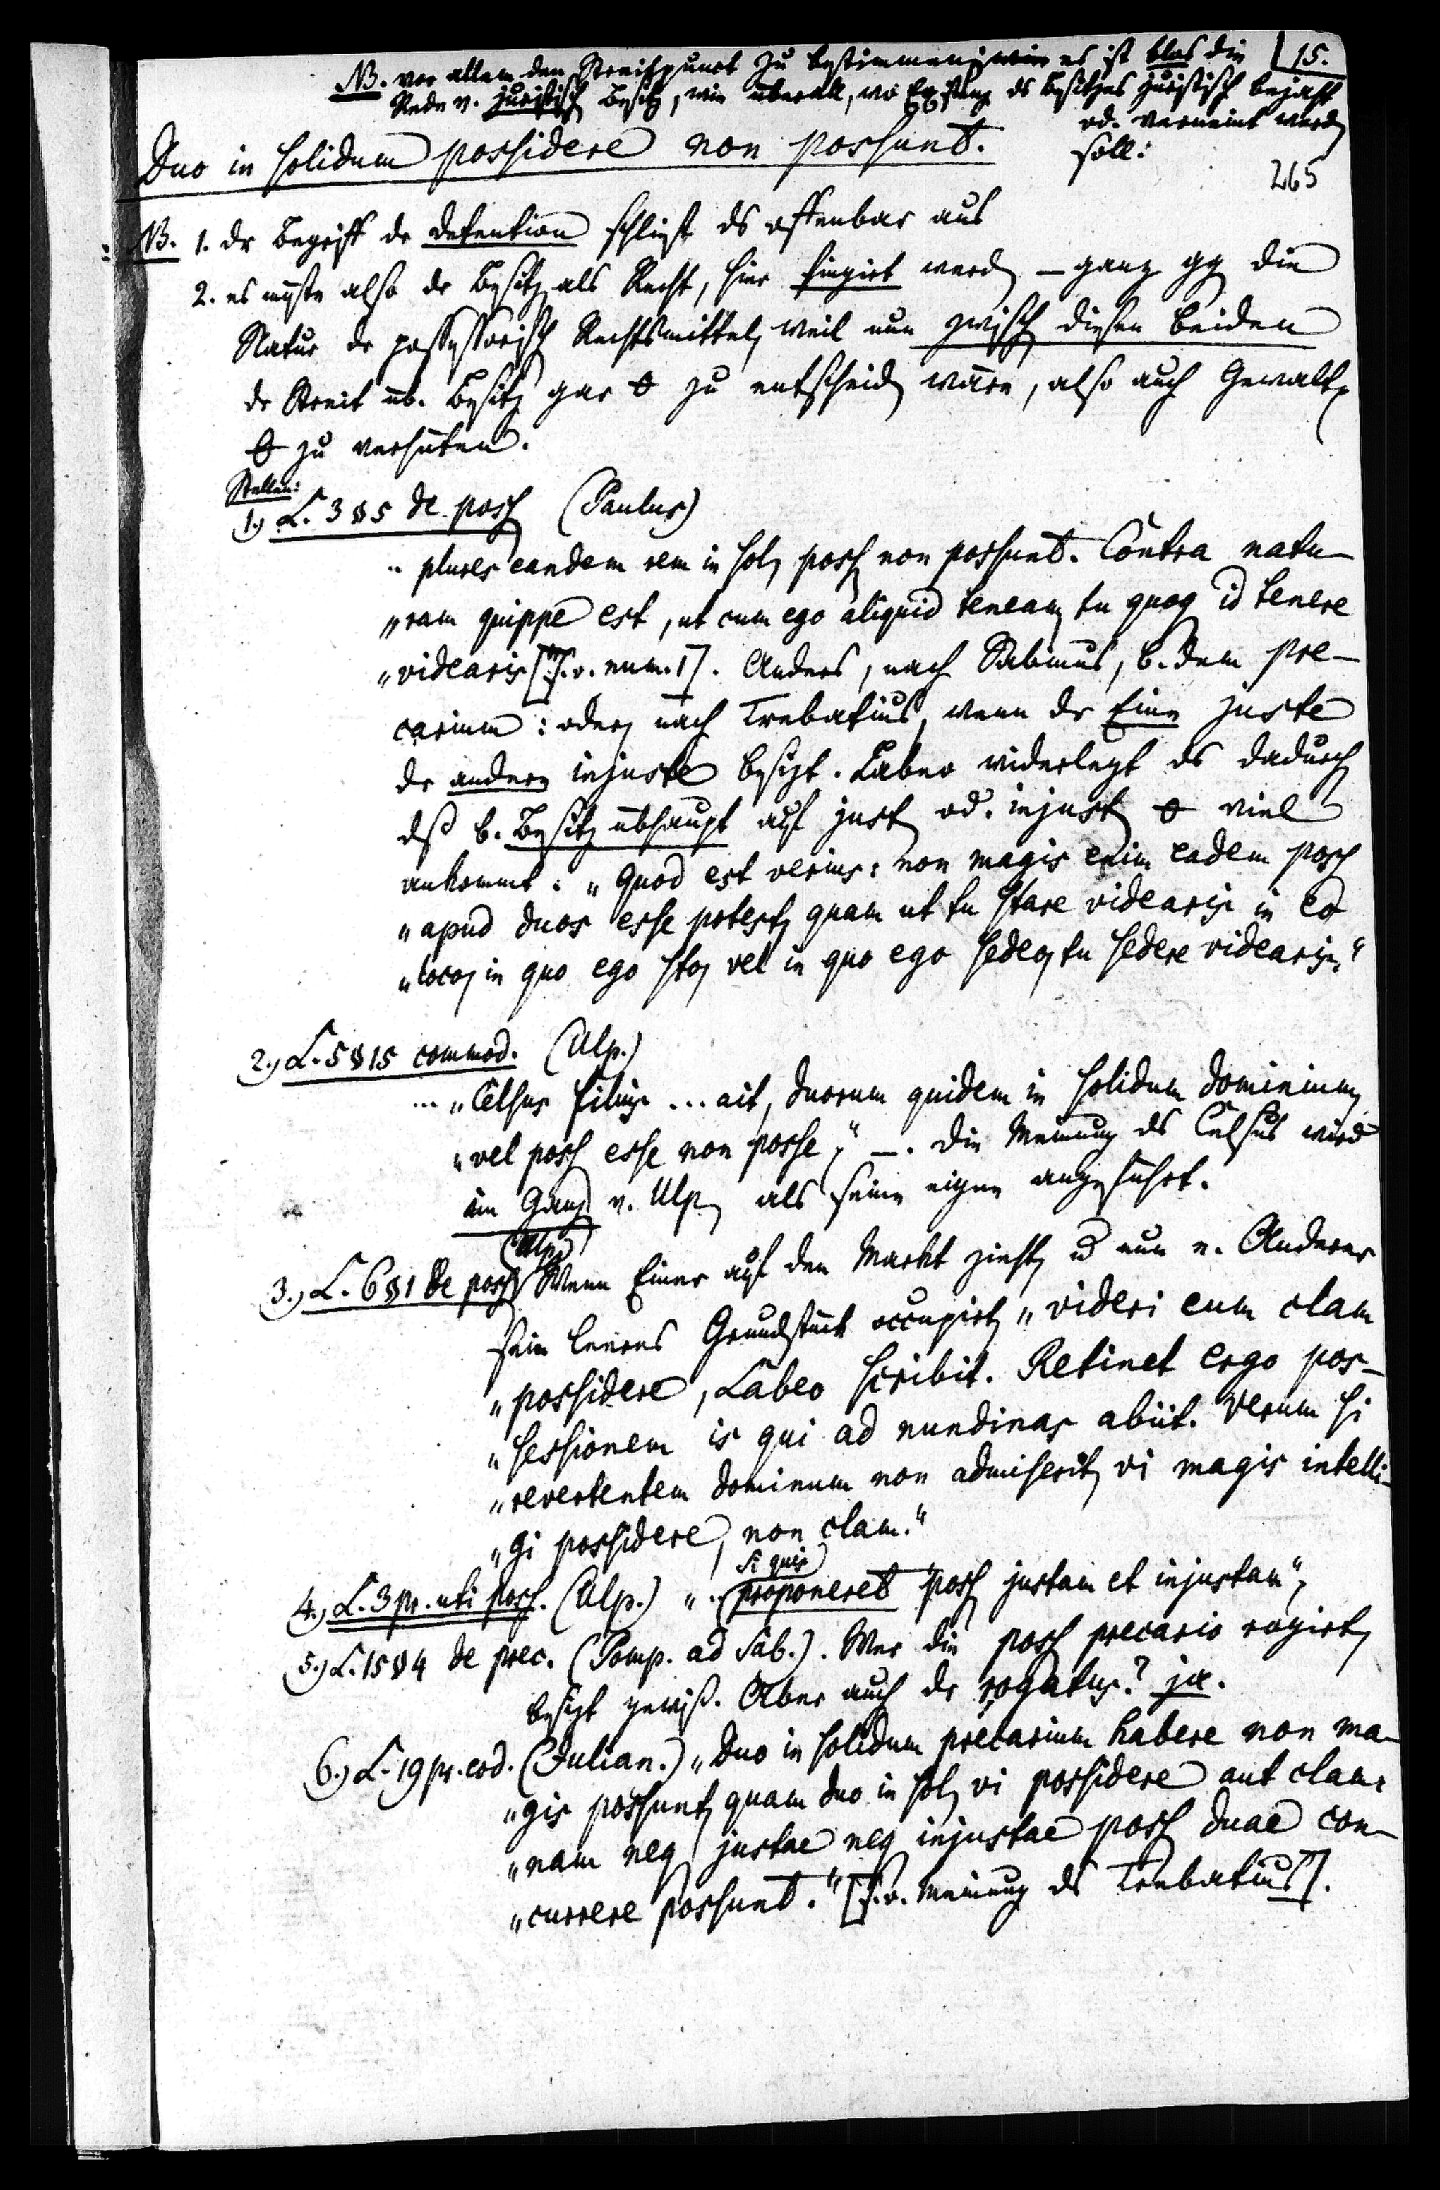 NB. vor allem den Streitpunct zu bestimmen: es ist blos die
15.
Rede v. juristisch Besitz, wie überall, wo Existenz ds Besitzes juristisch bejaht
od. verneint werd
soll:
Duo in solidum possidere non possunt.
265
NB. 1. dr Begriff dr Detention schließt ds offenbar aus
2. es müßte also dr Besitz, als Recht, hier fingirt werd – ganz gg die
Natur dr possessorisch Rechtsmittel, weil nun zwisch diesen beiden
dr Streit üb. Besitz gar θ zu entscheid wäre, also auch Gewalt
θ zu verhüten.
Stellen:
1.) L. 3 § 5 de poss (Paulus)
.. plures eandem rem in sol poss non possunt. Contra natu-
„ram quippe est, ut cum ego aliquid teneam, tu quoq id tenere
„videaris [s. o. num. 1]. Anders, nach Sabinus, b. dem pre-
carium: oder, nach Trebatius, wenn dr Eine juste
dr andere injuste besizt. Labeo widerlegt ds dadurch
dß b. Besitz übhaupt auf just od. injust θ viel
ankommt: „Quod est verius: non magis enim eadem poss
„apud duos esse potest, quam ut tu stare videaris in eo
„loco, in quo ego sto, vel in quo ego sedeo, tu sedere videaris."
2.) L. 5 § 15 commod. (Ulp.)
... „Celsus filius ... ait, duorum quidem in solidum dominium
„vel poss esse non posse," –. Die Meinung ds Celsus wird
im Ganz v. Ulp, als seine eigne angeführt.
(Ulp)
3.) L. 6 § 1 de poss Wenn Einer auf den Markt zieht, u nun e. Anderer
sein leeres Grundstück occupirt, „videri eum clam
„possidere, Labeo scribit. Retinet ergo pos-
„sessionem is qui ad nundinas abiit. Verum si
„revertentem dominum non admiserit, vi magis intelli-
„gi possidere, non clam."
si quis
4.) L. 3 pr. uti poss. (Ulp.) „. proponeret poss justam et injustam",
5.) L. 15 § 4 de prec. (Pomp. ad Sab.). Wer die poss precario rogirt,
besizt gewiß. Aber auch dr rogatus? ja.
6.) L. 19 pr. eod. (Julian.) „Duo in solidum precarium habere non ma-
„gis possunt, quam duo in sol, vi possidere aut clam:
„nam neq justae neq injustae poss duae con-
„currere possunt." [s. o. Meinung ds Trebatius].